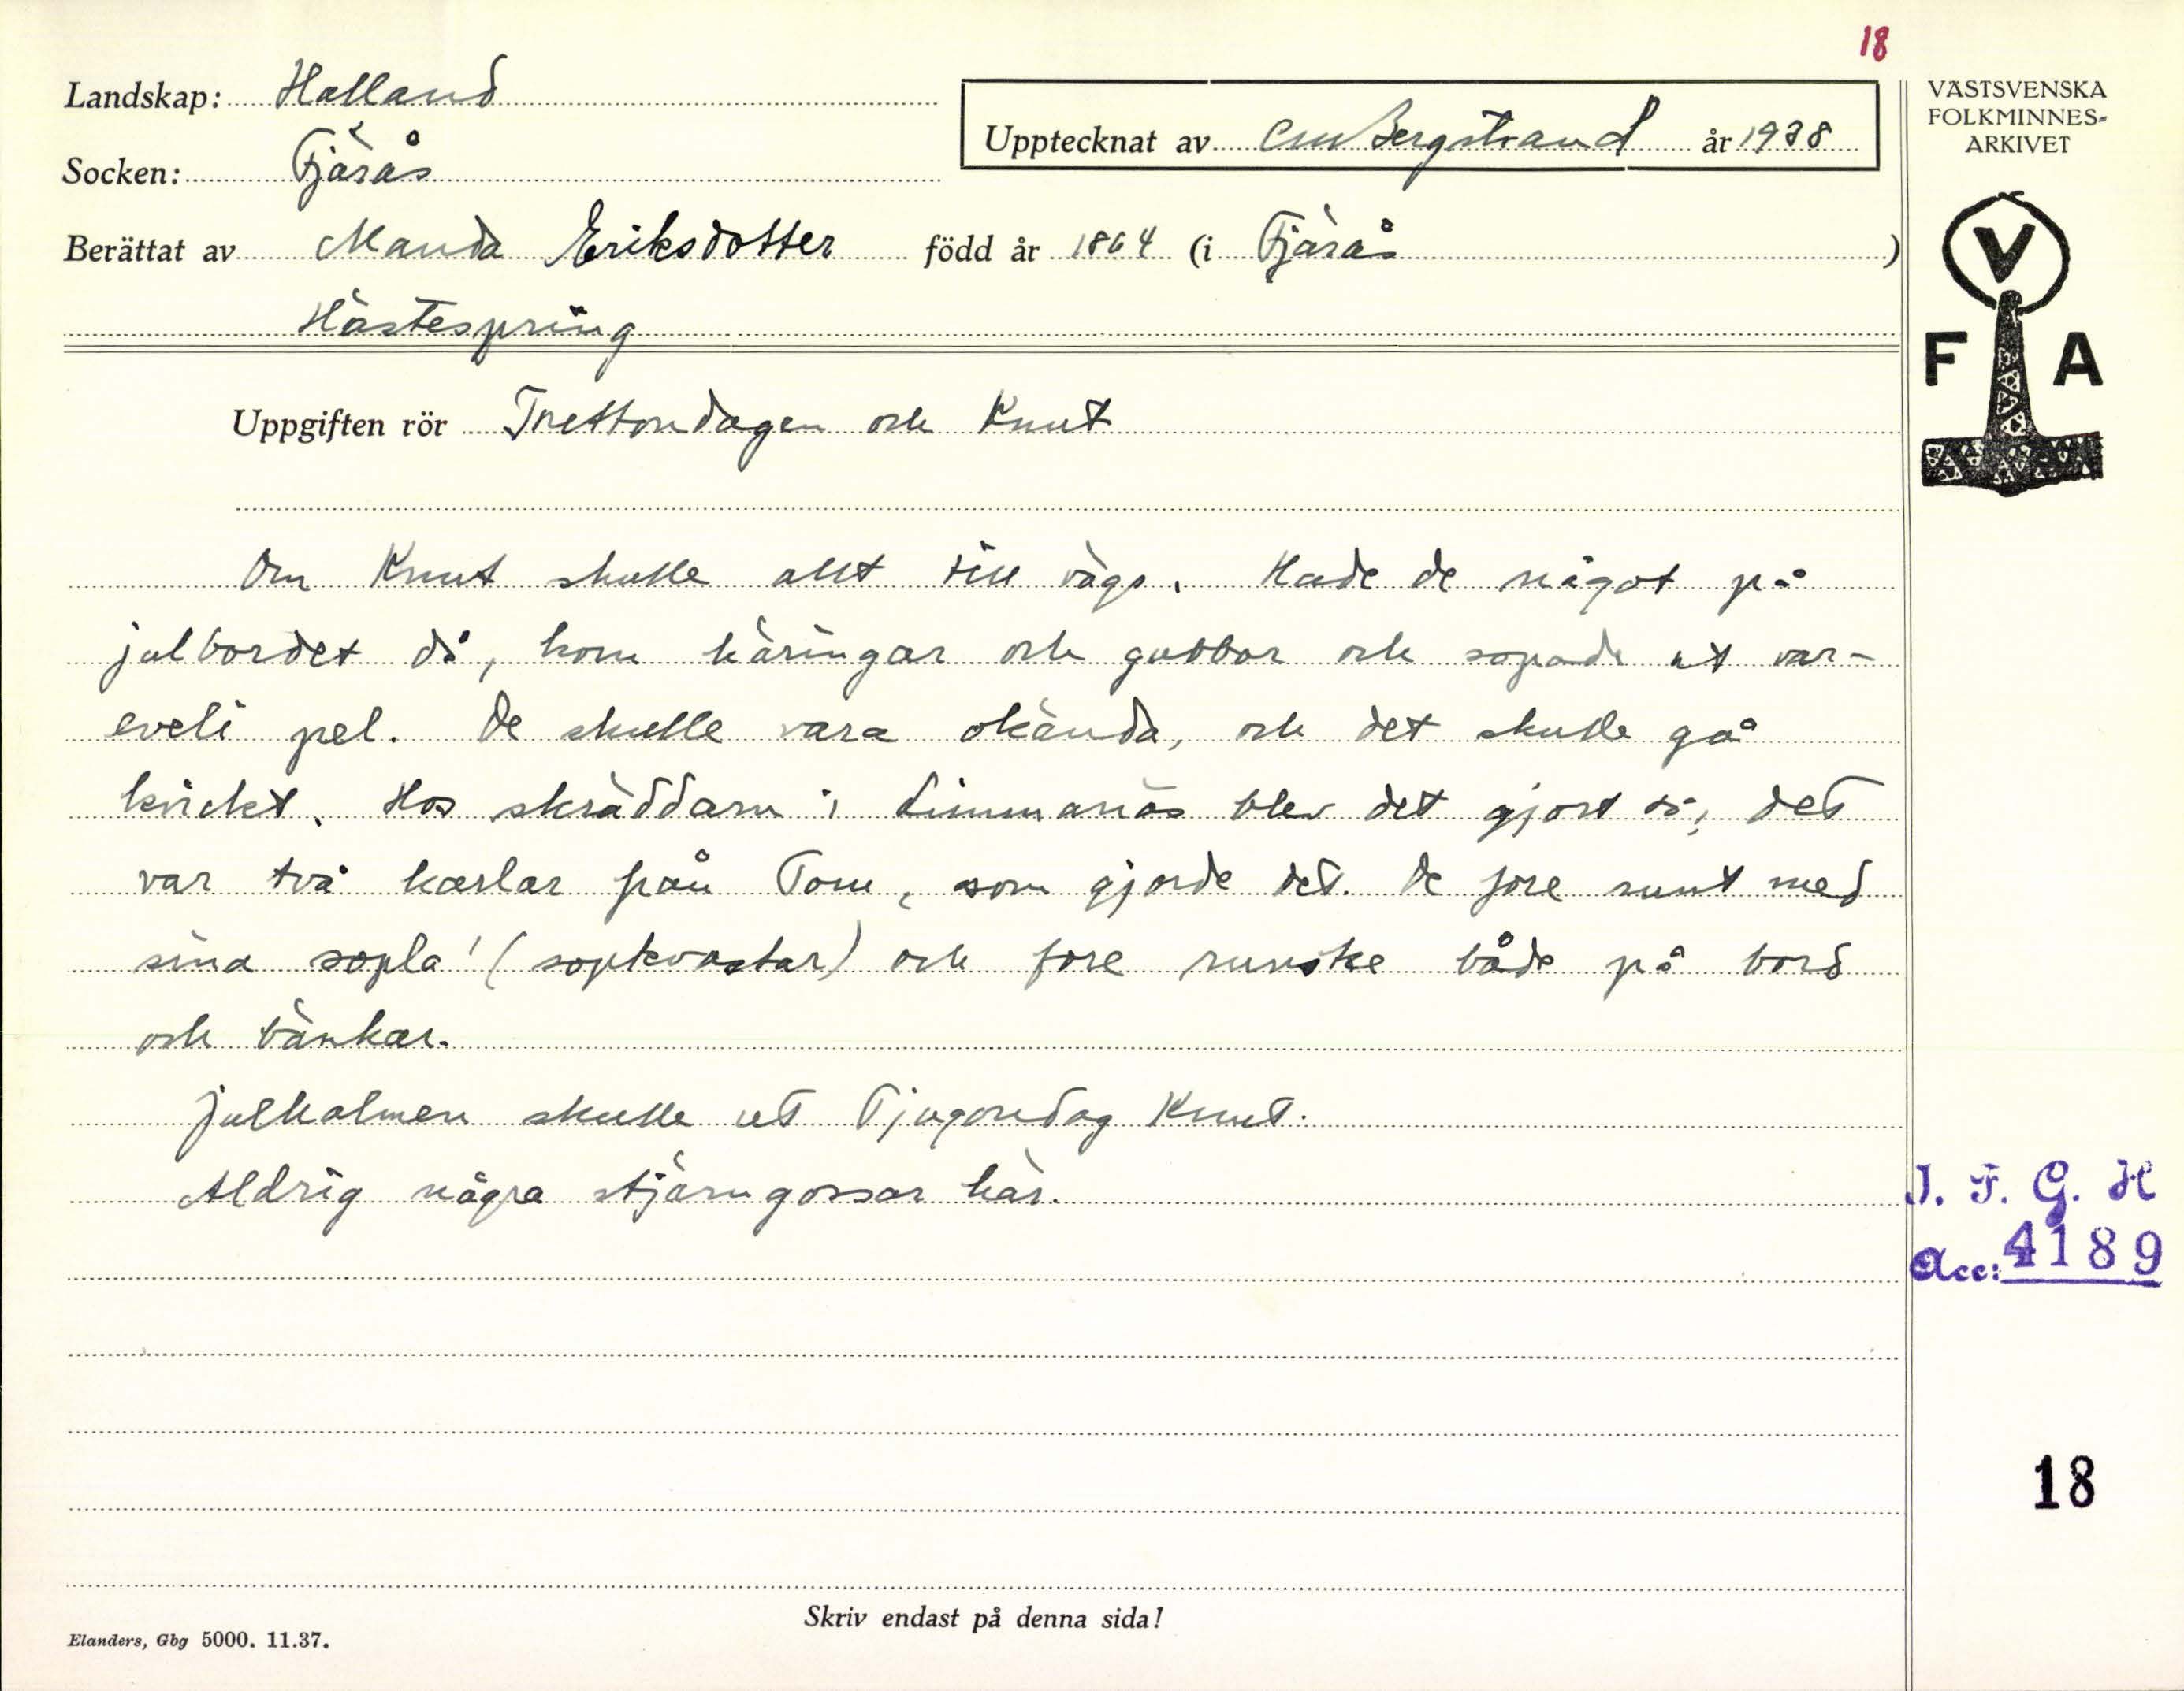 18
Landskap: Halland
Upptecknat av CM Bergstrand år 1938
VÄSTSVENSKA
FOLKMINNES-
ARKIVET
Socken: Fjärås
Berättat av Manda Eriksdotter född år 1864 (i Fjärås)
Hästespring
V
F A
Uppgiften rör Trettondagen och Knut
Om Knut skulle allt till vägs. Hade de något på
julbordet då, kom käringar och gubbar och sopade ut var-
eveli pel. De skulle vara okända, och det skulle gå
kvickt. Hos skräddarn i Limmanäs blev det gjort så, det
var två karlar från Tom, som gjorde det. De fore runt med
sina sopla' (sopkvastar) och fore runske både på bord
och bänkar.
Julhalmen skulle ut Tjugondag Knut.
Aldrig några stjärngossar här.
I. F. G. H
Acc: 4189
18
Skriv endast på denna sida!
Elanders, Gbg 5000. 11.37.